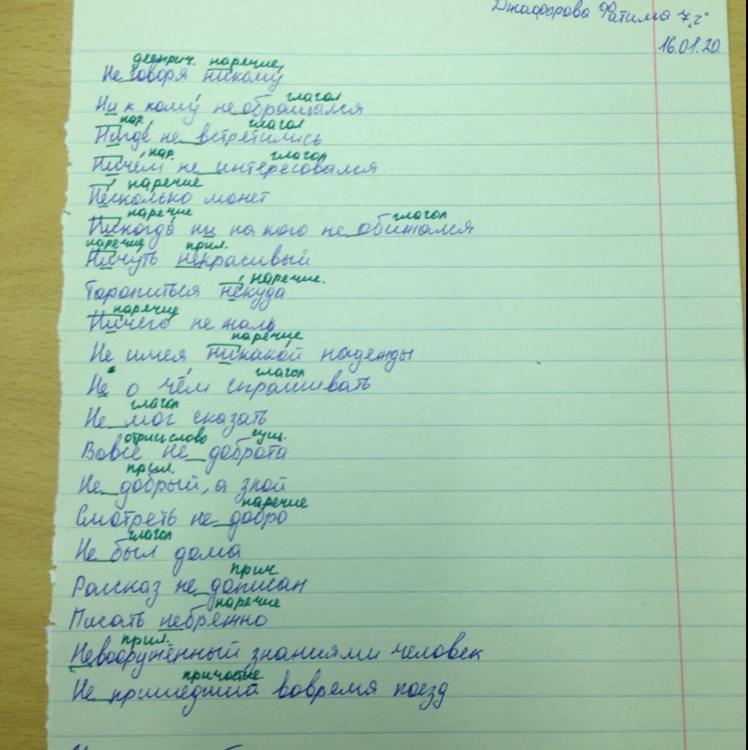 Джафарова Фатима 7 "г"
16.01.20.
дееприч. наречие
Не говоря никому
глагол
Ни к кому не обращался
нар. глагол
Нигде не встретились
нар. глагол
Ничем не интересовался
наречие
Несколько монет
наречие глагол
Никогда ни на кого не обижался
наречие прил.
Ничуть некрасивый
наречие.
Торопиться некуда
наречие
Ничего не жаль
наречие
Не имея никакой надежды
глагол
Не о чем спрашивать
глагол
Не мог сказать
отриц слово сущ.
Вовсе не доброта
прил.
Не добрый, а злой
наречие
Смотреть не добро
глагол
Не был дома
прич
Рассказ не дописан
наречие
Писать небрежно
прил.
Невооружённый знаниями человек
причастие
Не пришедший вовремя поезд